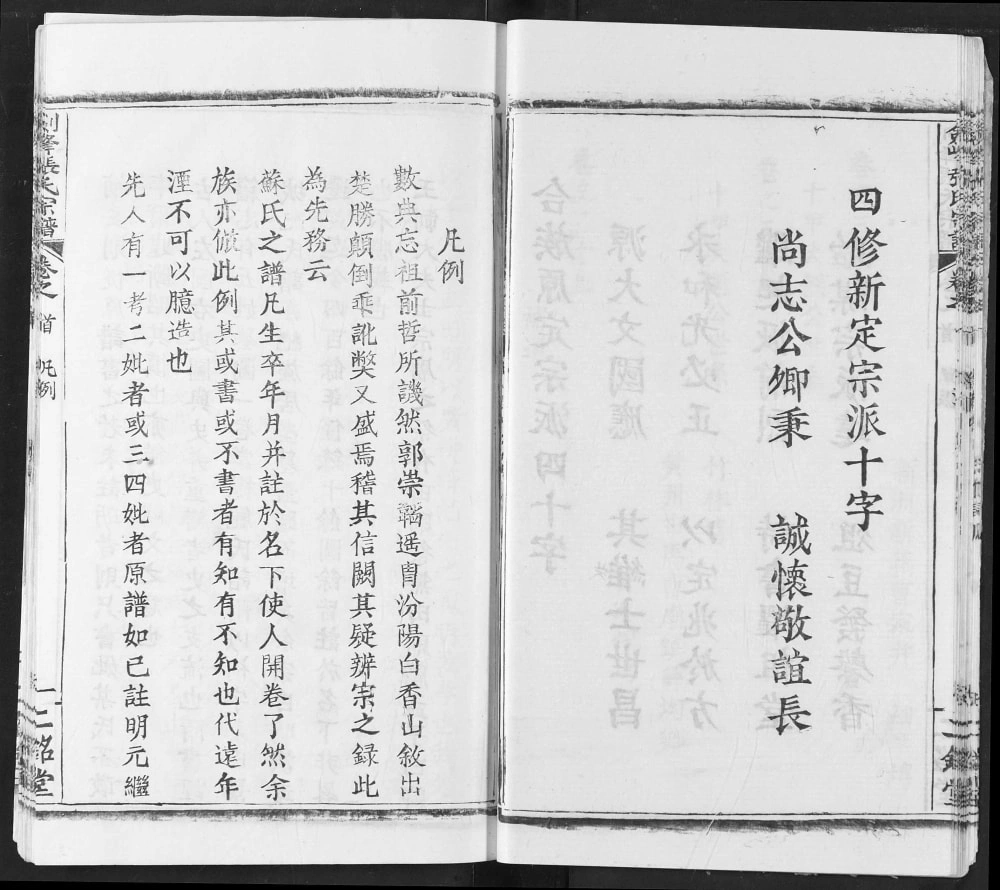 四修新定宗派十字
尚志公卿秉　誠懷敬誼長
凡例
數典忘祖前哲所譏然郭崇韜遥胄汾陽白香山敘出
楚勝顛倒乖訛獘又盛焉稽其信闕其疑辨宗之録此
為先務云
蘇氏之譜凡生卒年月并註於名下使人開卷了然余
族亦倣此例其或書或不書者有知有不知也代遠年
湮不可以臆造也
先人有一考二妣者或三四妣者原譜如已註明元繼
張氏宗譜
卷之
首
凡例
二銘堂